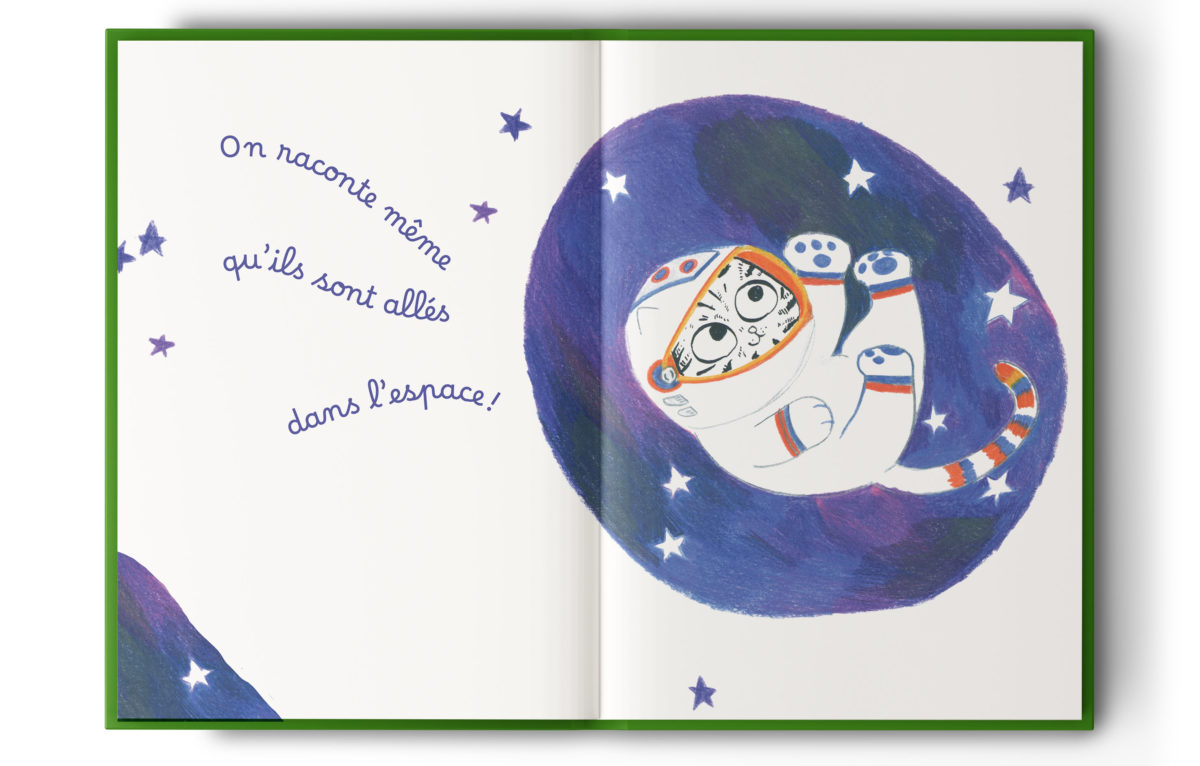 On raconte même
qu'ils sont allés
dans l'espace!